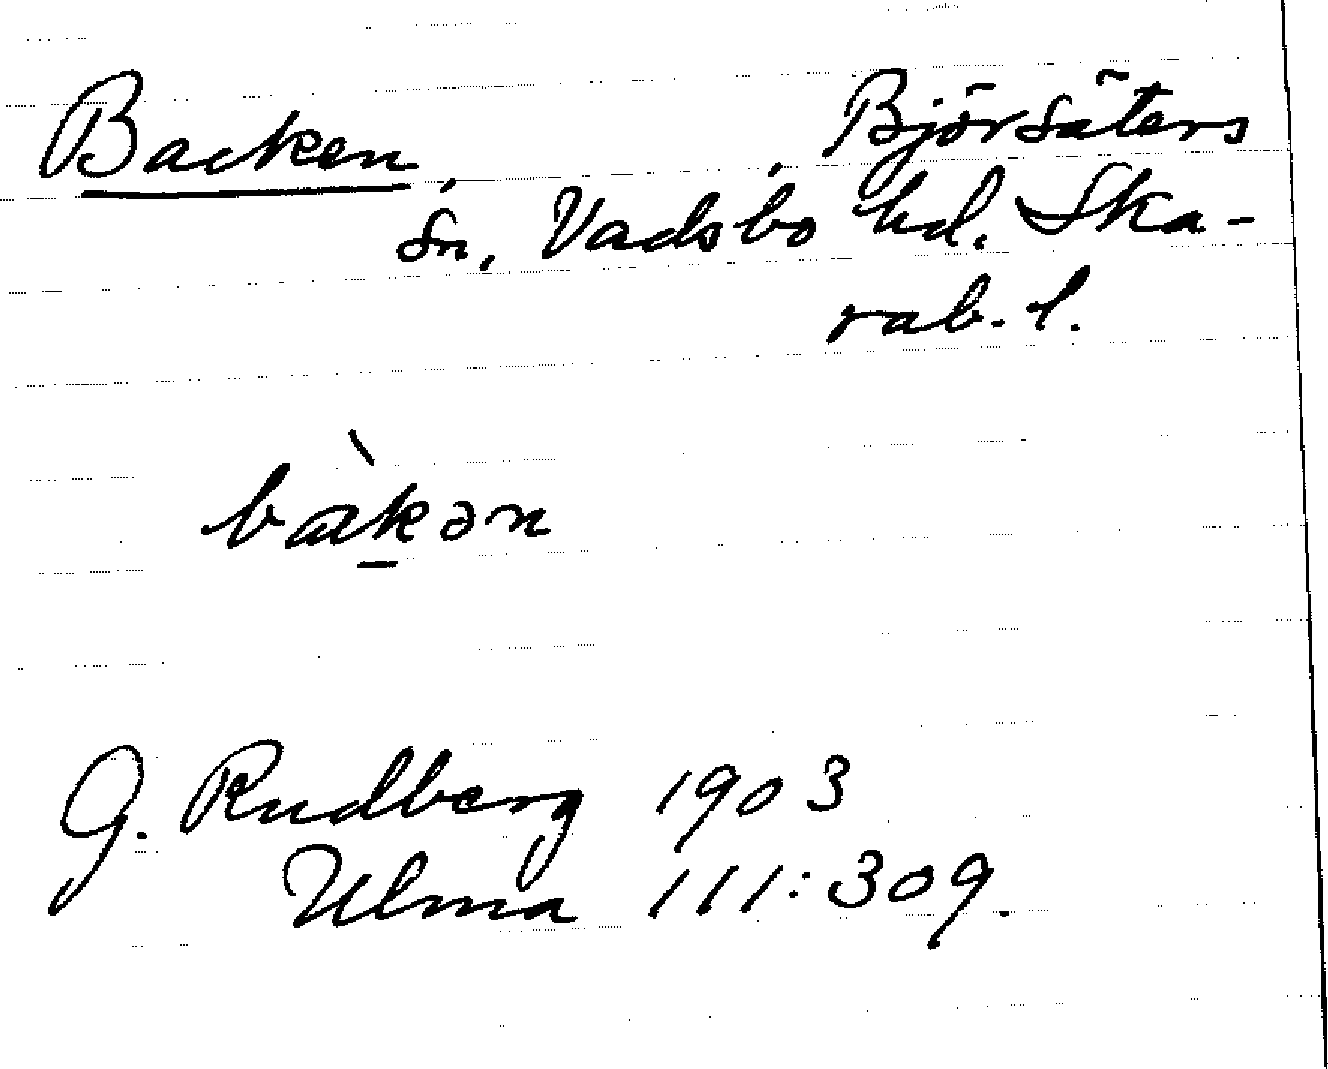 Backen Björsäters
sn, Vadsbo hd. Ska-
rab. l.
bàk̠ən
G. Rudberg 1903
Ulma 111:309.